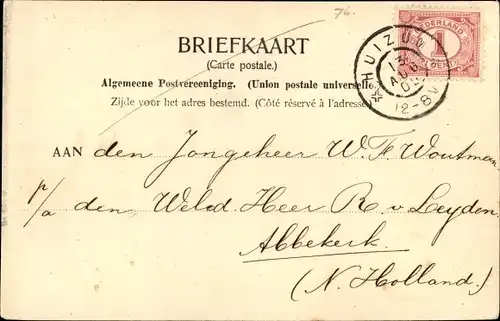 76.
BRIEFKAART
(Carte postale.)
Algemeene Postvereeniging. (Union postale universelle.
Zijde voor het adres bestemd. (Côté réservé à l'adresse.
NEDERLAND
1
CENT
HUIZUM
13
AUG
12-8V
AAN den Jongeheer W. F. Woutman
p/a den Weled Heer R. v. Leyden.
Abbekerk.
(N. Holland.)